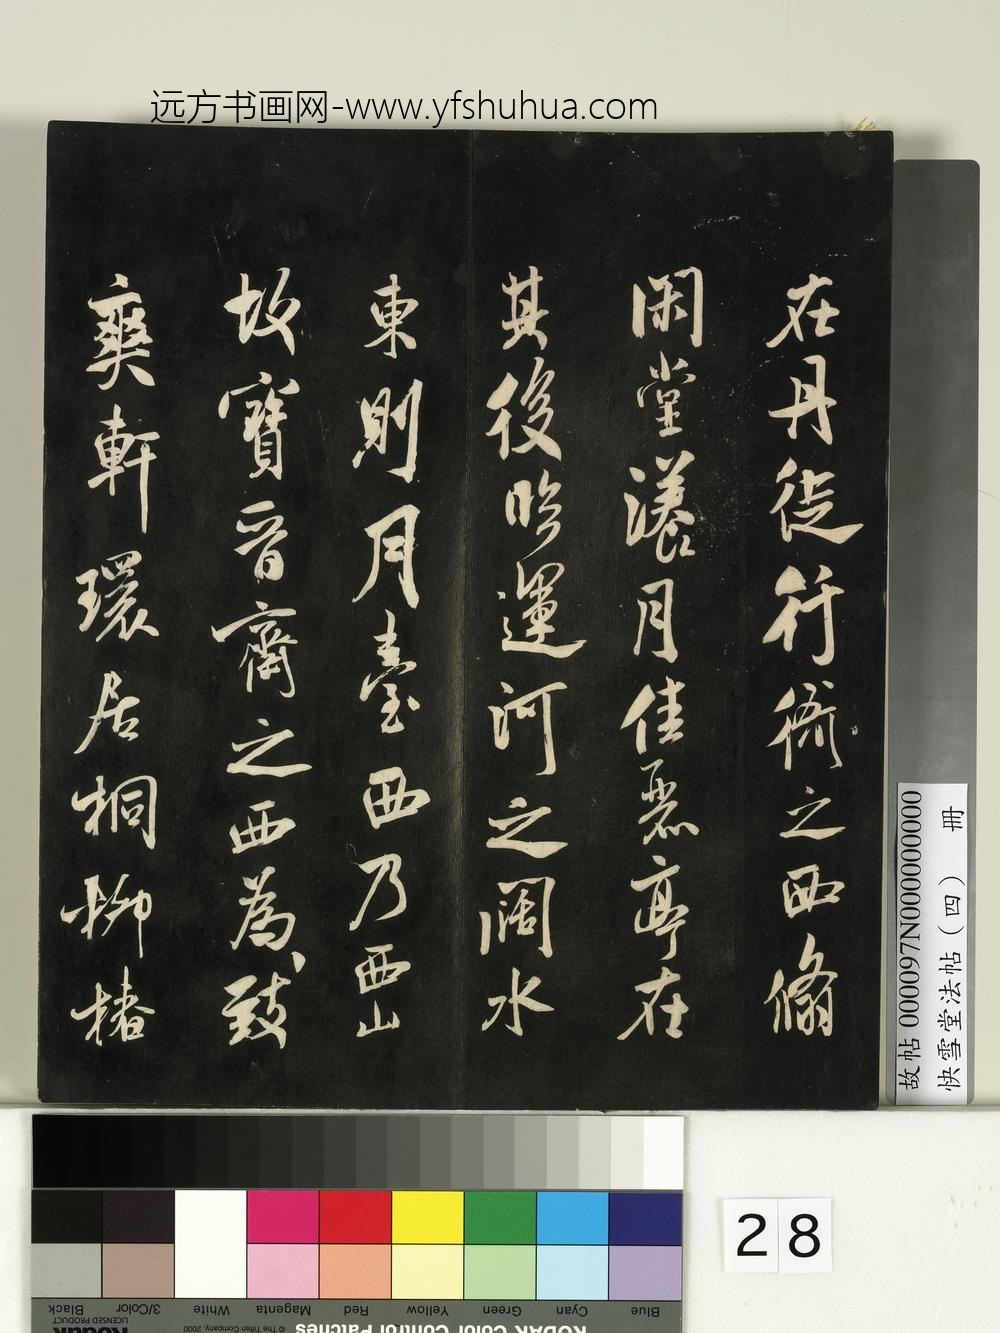 远方书画网-www.yfshuhua.com
在丹徒行衙之西翛
閑堂漾月佳麗亭在
其後臨運河之闊水
東則月臺西乃西山
故寶晉齋之西為致
爽軒環居桐柳椿
故帖 000097N000000000000
快雪堂法帖（四） 冊
28
Black
3/Color
White
Magenta
Red
Yellow
Green
Cyan
Blue
Kodak
LICENSED PRODUCT
© The Tiffen Company, 2000
KODAK Color Control Patches